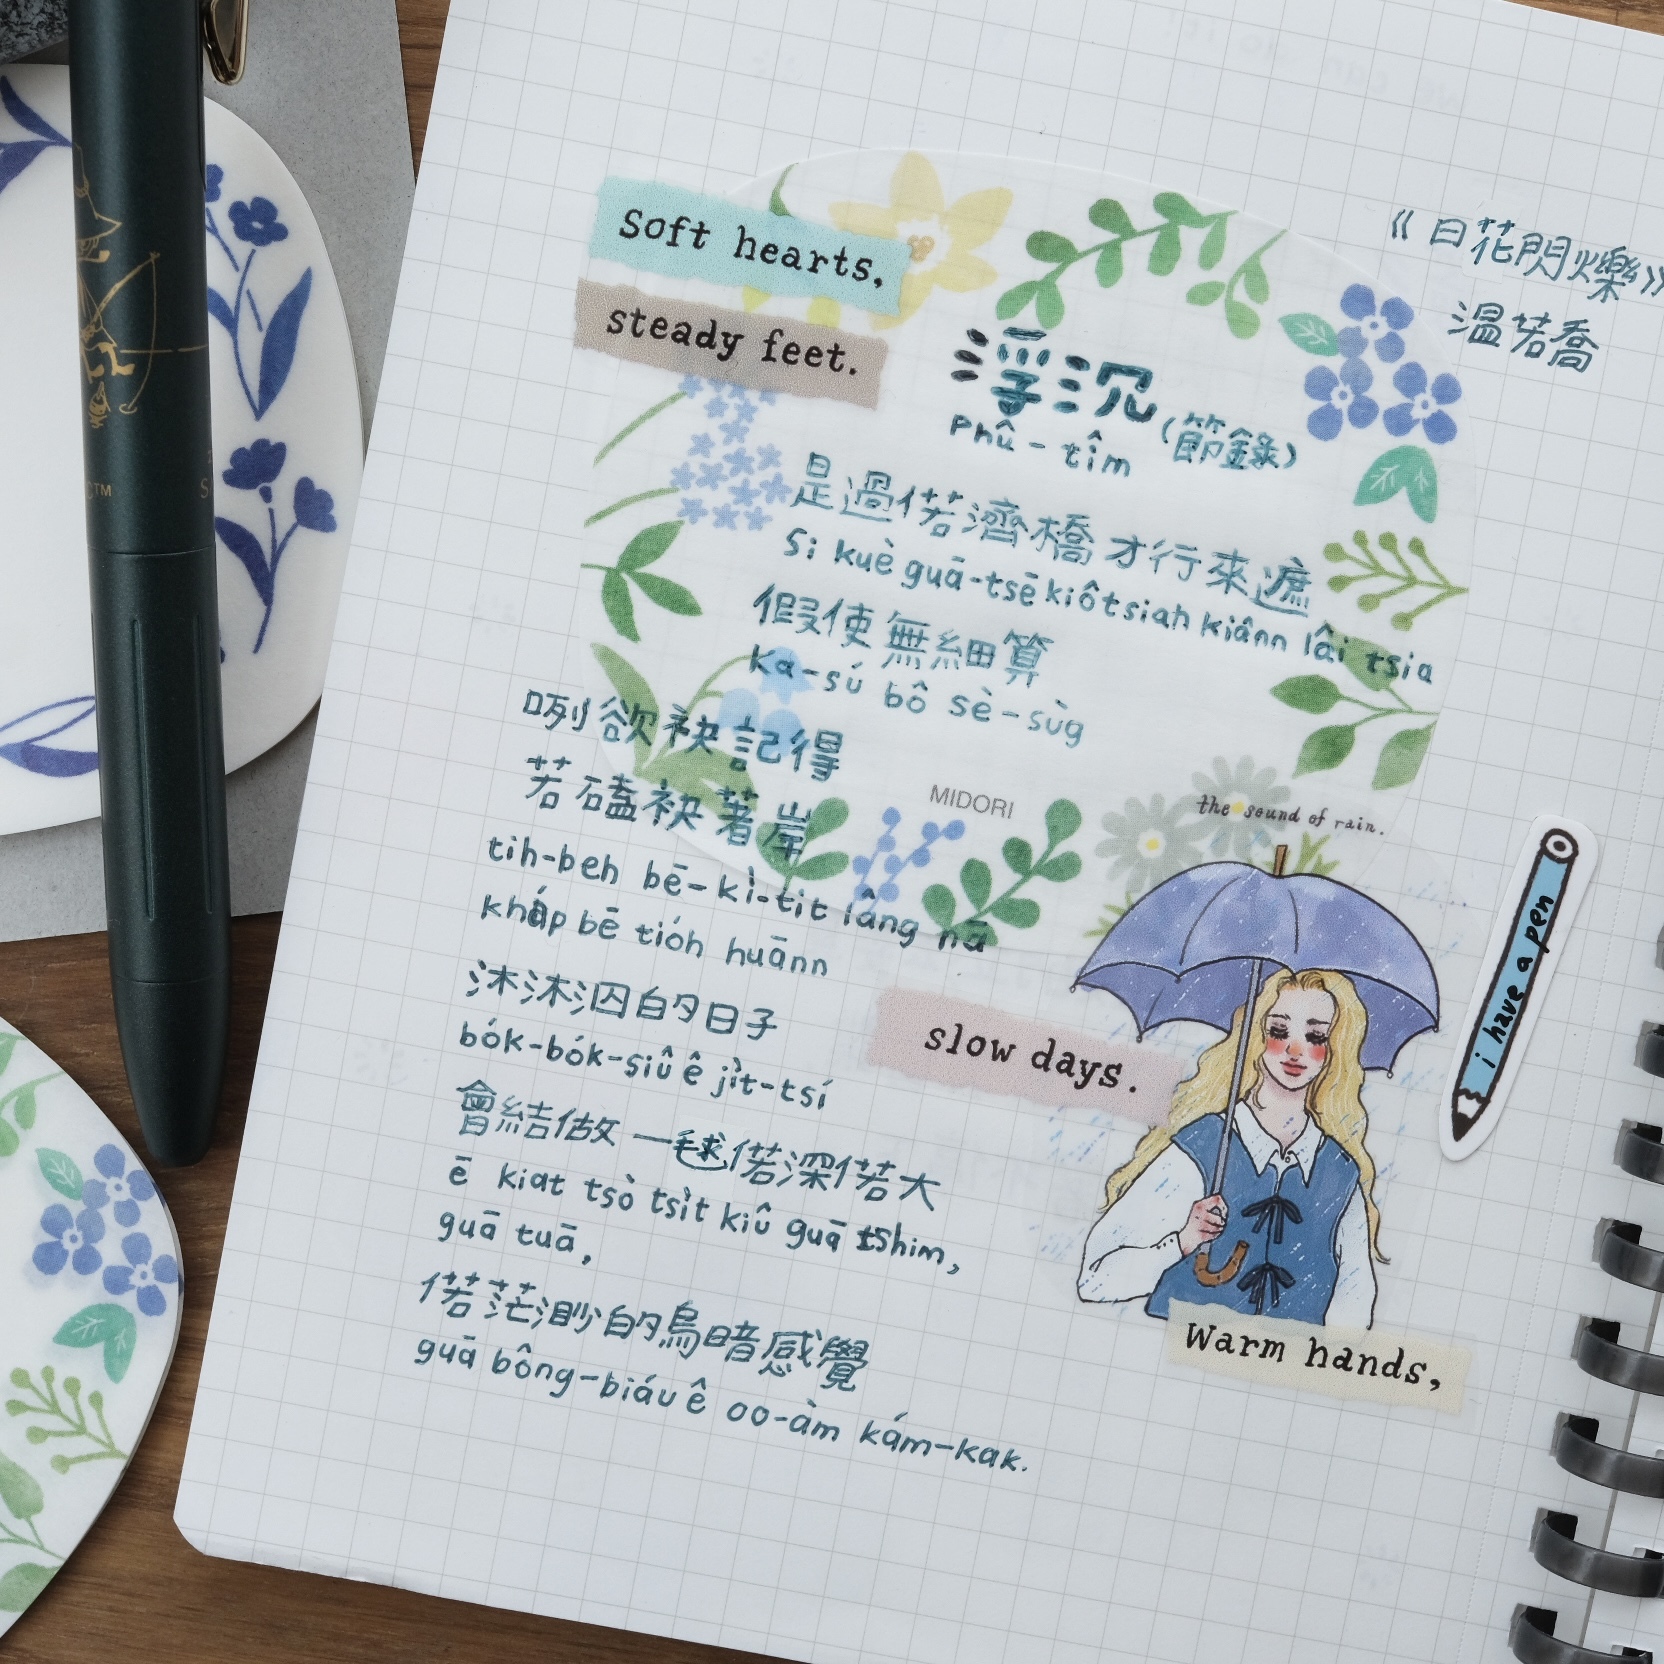 Soft hearts,
steady feet.
《日花閃爍》
溫若喬
浮沉
(節錄)
Phû-tîm
是過偌濟橋才行來遮
Sī kuè guā-tsē kiô tsiah kiânn lâi tsia
假使無細算
ka-sú bô sè-sǹg
咧欲袂記得
若磕袂著岸
tih-beh bē-kì-tit lâng nā
kha̍p bē tio̍h huānn
沐沐泅的日子
bo̍k-bo̍k-siû ê ji̍t-tsí
會結做一毬偌深偌大
ē kiat tsò tsi̍t kiû guā tshim,
guā tuā,
偌茫渺的烏暗感覺
guā bông-biáu ê oo-àm kám-kak.
MIDORI
the sound of rain.
slow days.
Warm hands,
i have a pen